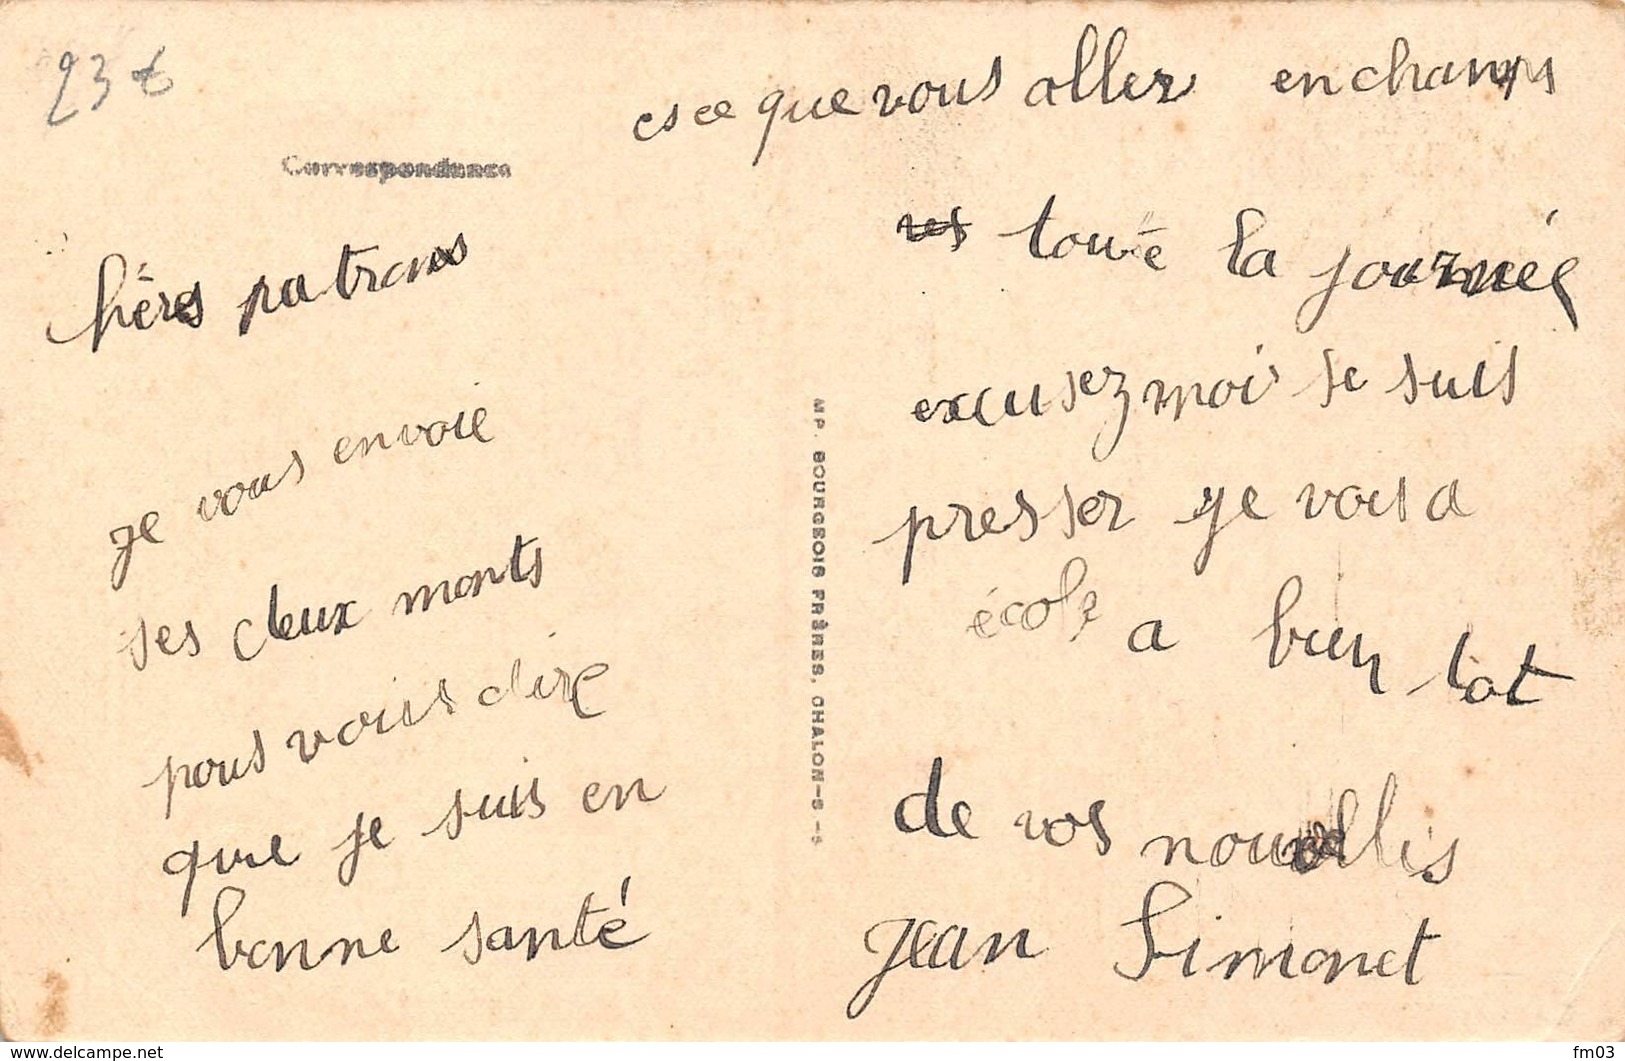 23 €
Correspondance
hères patrons
je vous envoie
ses deux monts
pous vous dire
que je suis en
bonne santé
es ce que vous aller en champs
toute la journée
excusez moi je suis
presser je vais a
école a bien tot
de vos nouvelles
Jean Simonet
MP. BOURGEOIS FRÈRES, CHALON-S -S
https://www.delcampe.net
fm03